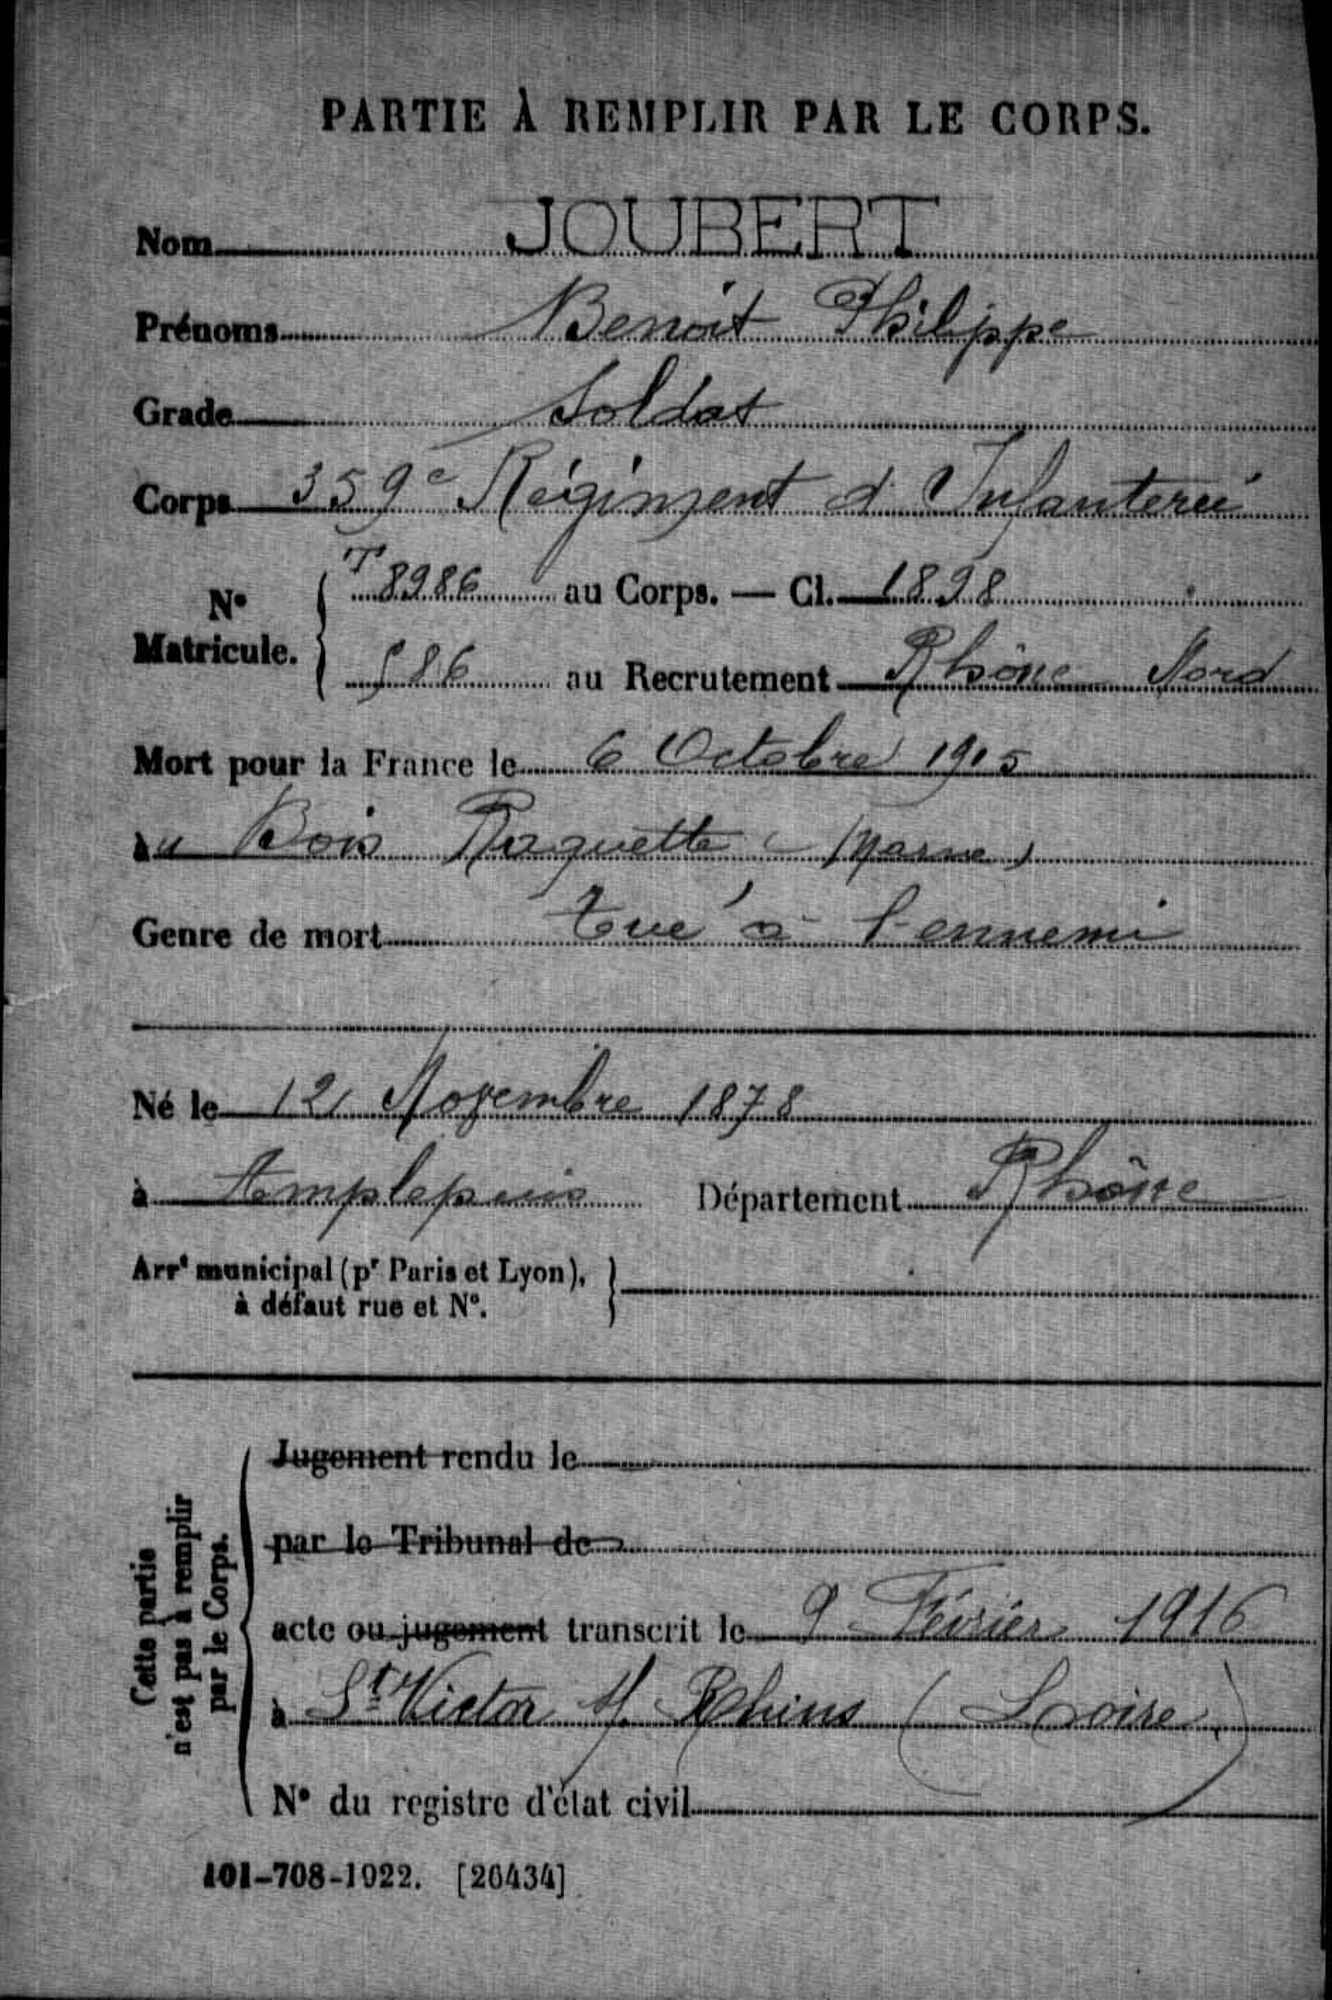 PARTIE À REMPLIR PAR LE CORPS.
Nom JOUBERT
Prénoms Benoit Philippe
Grade Soldat
Corps 359e Régiment d'Infanterie
N° Matricule. T 8986 au Corps. — Cl. 1898
986 au Recrutement Rhône Nord
Mort pour la France le 6 Octobre 1915
au Bois Raquette (Marne)
Genre de mort Tué à l'ennemi
Né le 12 Novembre 1878
à Amplepuis Département Rhône
Arrt municipal (pr Paris et Lyon),
à défaut rue et N°.
Cette partie
n'est pas à remplir
par le Corps.
Jugement rendu le
par le Tribunal de
acte ou jugement transcrit le 9 Février 1916
à St Victor s/ Rhins (Loire)
N° du registre d'état civil
101-708-1922. [26434]